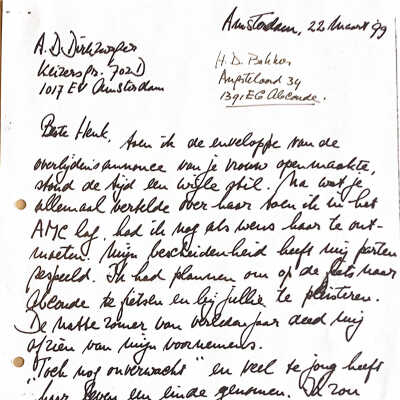 Amsterdam, 22 maart 99
A.D. Dirkzwager
Keizersgr. 702D
1017 EV Amsterdam
H.D. Bakker
Angsteloord 34
1391 EG Abcoude.
Beste Henk,
toen ik de enveloppe van de
overlijdensannonce van je vrouw openmaakte,
stond de tijd een wijle stil. Na wat je
allemaal vertelde over haar toen ik in het
AMC lag, had ik nog als wens haar te ont-
moeten. Mijn bescheidenheid heeft mij parten
gespeeld. Ik had plannen om op de fiets naar
Abcoude te fietsen en bij jullie te pleisteren.
De natte zomer van verleden jaar deed mij
afzien van mijn voornemens.
"Toch nog onverwacht" en veel te jong heeft
haar leven een einde genomen. Ik zou